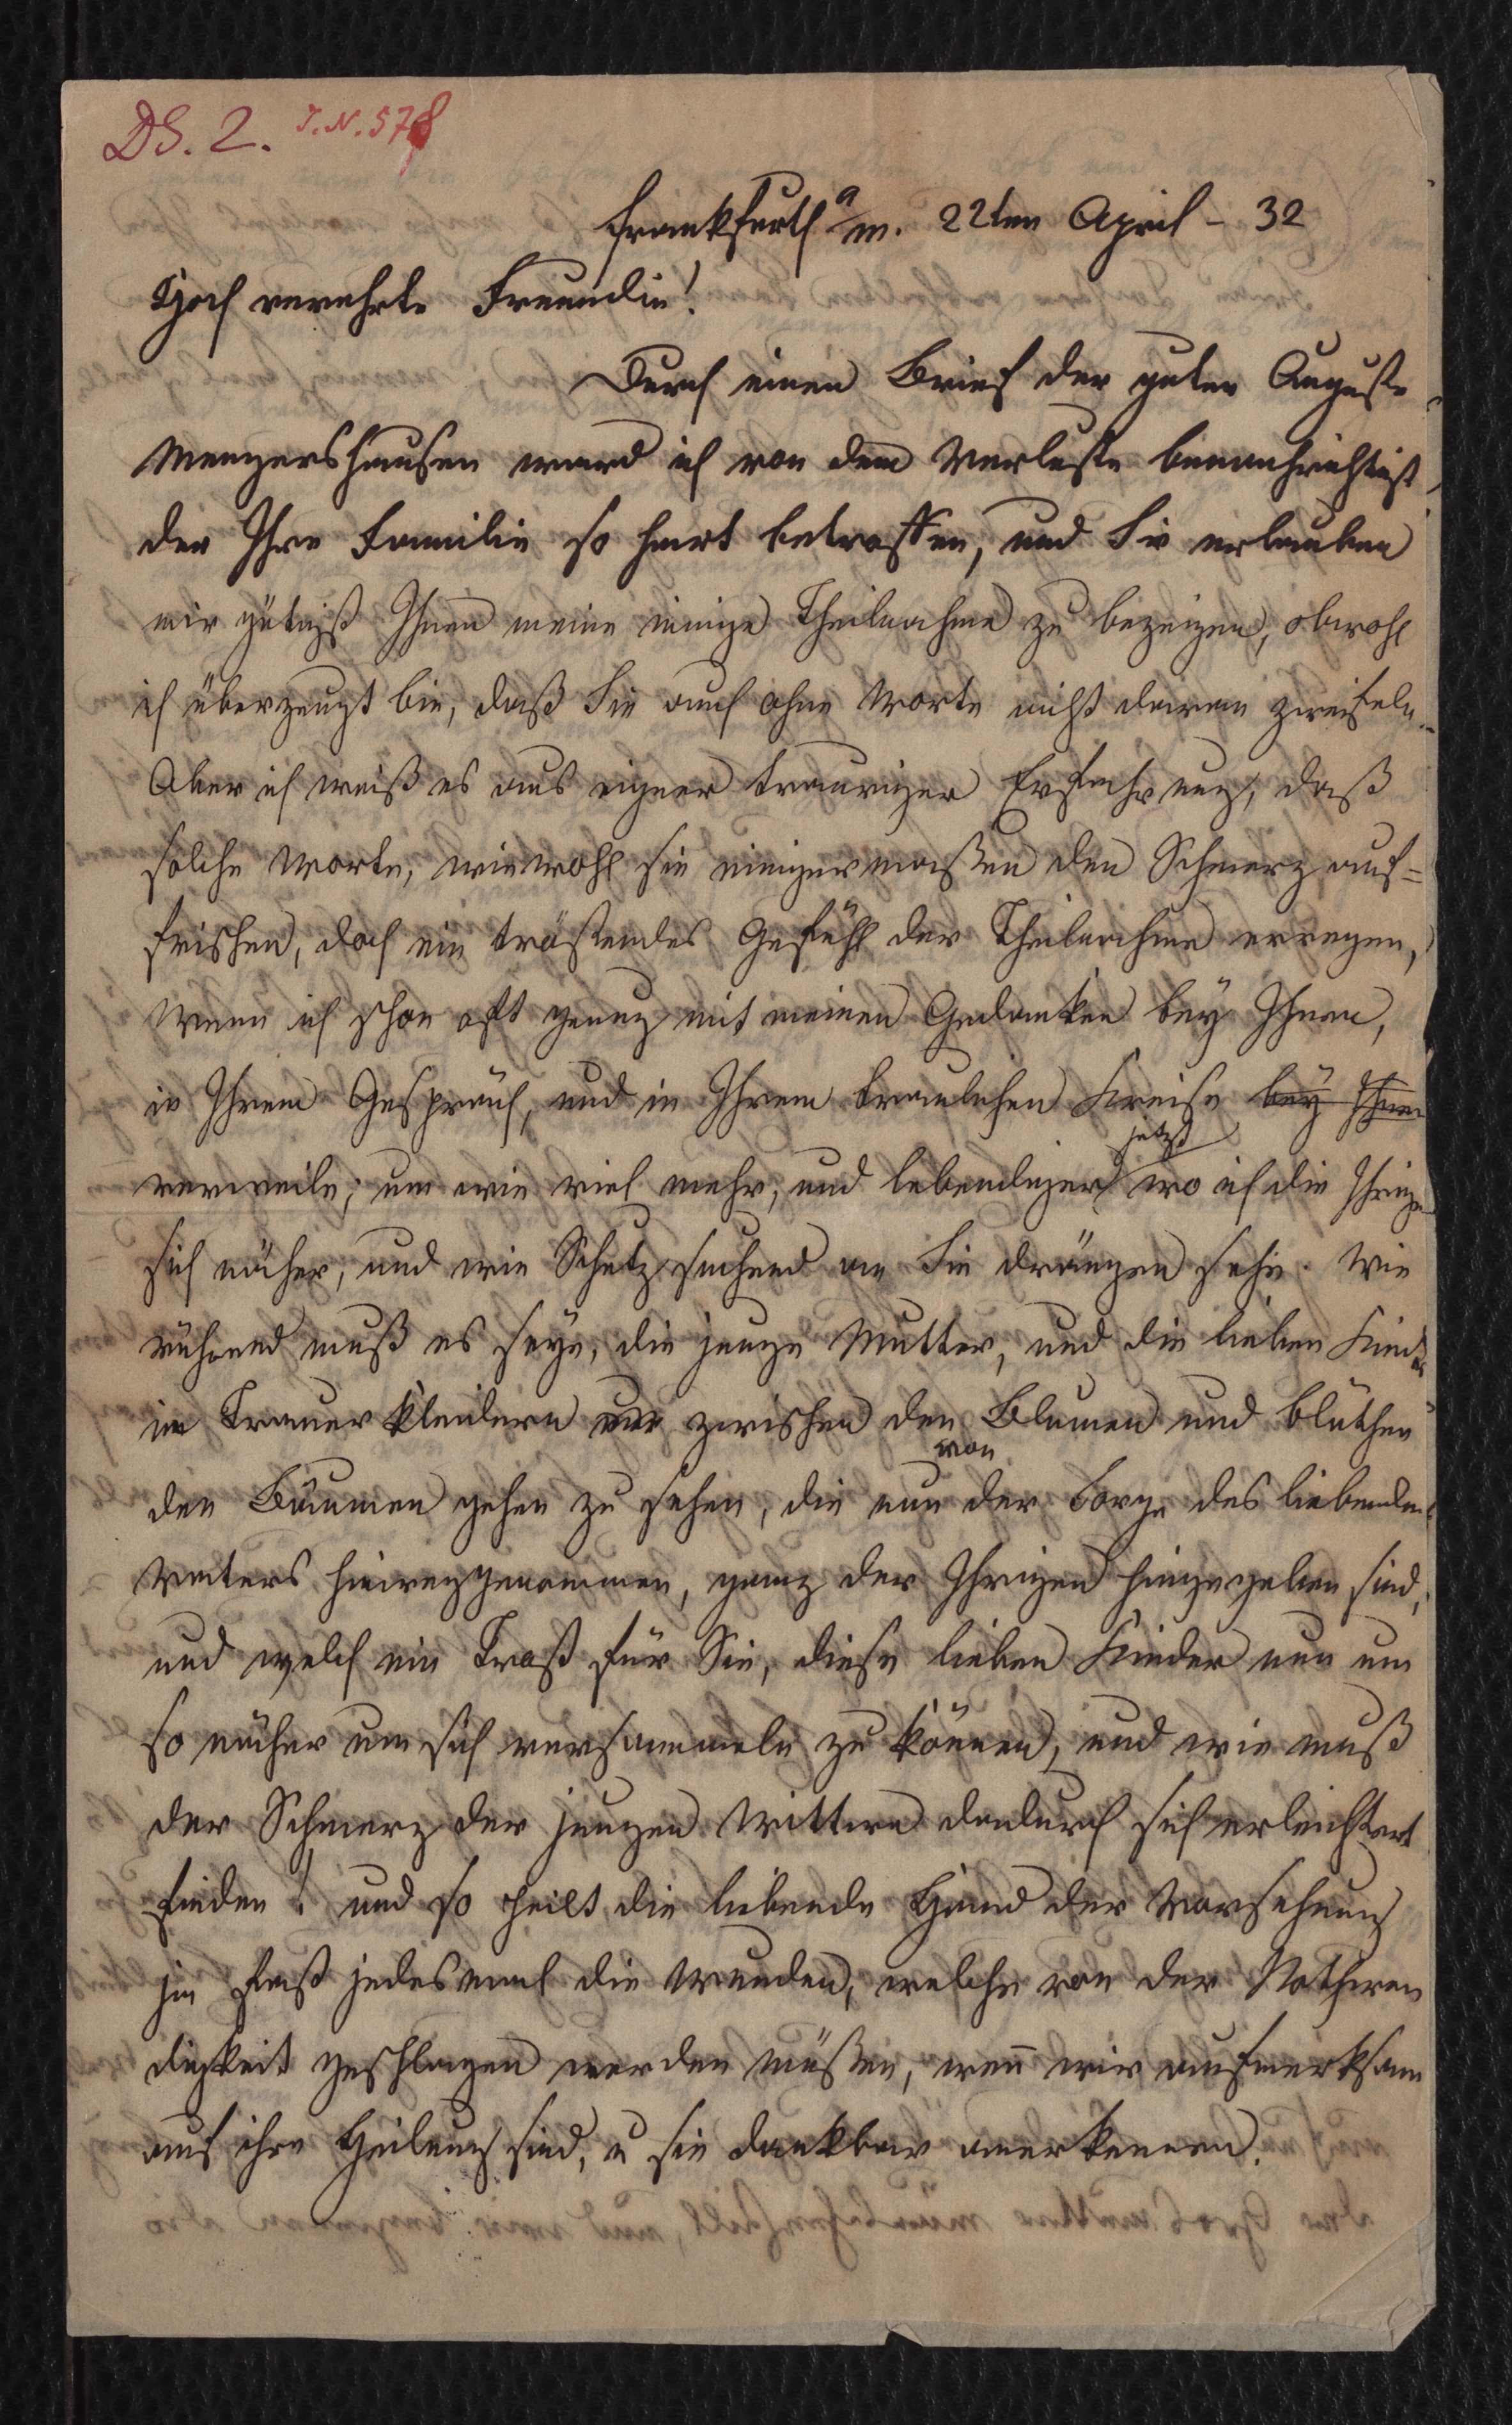 DS. 2. J. N. 578
Frankfurth a/m. 22ten April - 32
Hoch verehrte Freundin!
Durch einen Brief der guten Auguste
Mengershausen ward ich von dem Verluste benachrichtigt,
der Ihre Familie so hart betroffen, und Sie erlauben
mir gütigst Ihnen meine innige Theilnahme zu bezeigen, obwohl
ich überzeugt bin, daß Sie auch ohne Worte nicht daran zweifeln.
Aber ich weiß es aus eigner trauriger Erfahrung, daß
solche Worte, wiewohl sie einigermaßen den Schmerz auf=
frischen, doch ein tröstendes Gefühl der Theilnahme erregen,
Wenn ich schon oft genug mit meinen Gedanken bey Ihnen,
in Ihrem Gespräch, und in Ihrem traulichen Kreise bey Ihnen
verweile, um wie viel mehr, und lebendiger jetzt wo ich die Ihrigen
sich näher, und wie Schutz suchend an Sie drängen sehe. Wie
rührend muß es seyn, die junge Mutter, und die lieben Kinder
in Trauerkleidern zwischen den Blumen und blüthen
den Bäumen gehen zu sehen, die nun von der Sorge des liebenden
Vaters hinweggenommen, ganz der Ihrigen hingegeben sind,
und welch ein Trost für Sie, diese lieben Kinder nun um
so näher um sich versammeln zu können, und wie muß
der Schmerz der jungen Wittwe dadurch sich erleichtert
finden! und so heilt die liebende Hand der Vorsehung
ja fast jedesmal die Wunden, welche von der Nothwen
digkeit geschlagen werden müßen, wenn wir aufmerksam
auf ihre Heilung sind, u sie dankbar anerkennen.